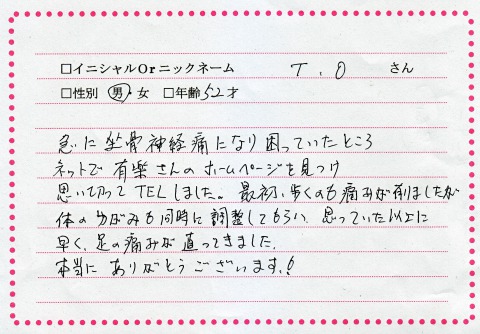 □イニシャルOrニックネーム T.O さん
□性別 男・女 □年齢 52才
急に坐骨神経痛になり困っていたところ
ネットで有楽さんのホームページを見つけ
思い切ってTELしました。最初、歩くのも痛みが有りましたが
体のゆがみも同時に調整してもらい、思っていた以上に
早く、足の痛みが直ってきました。
本当にありがとうございます!